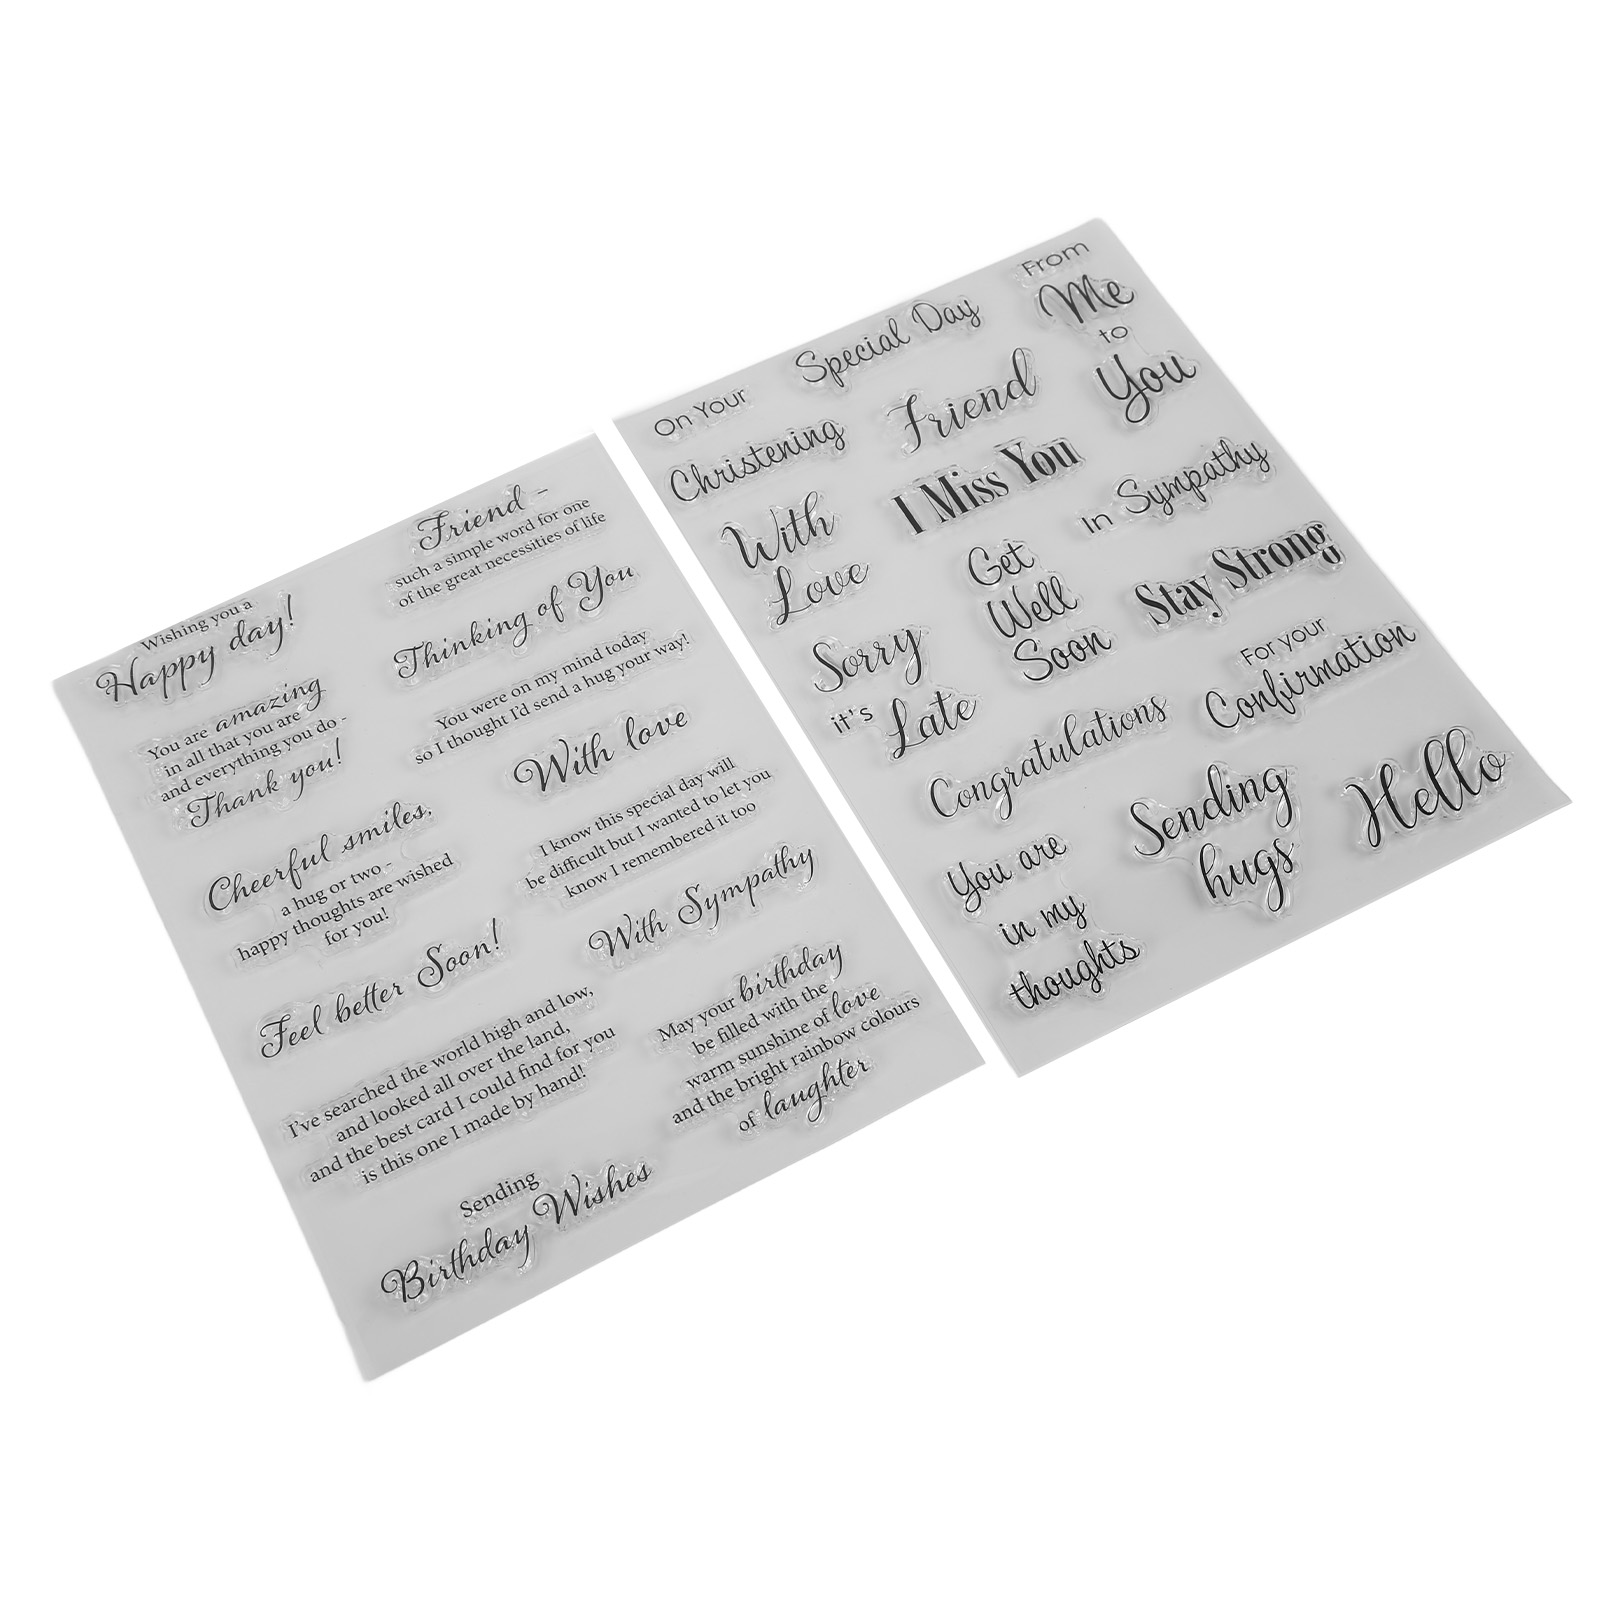 Wishing you a
Happy day!
You are amazing
in all that you are
and everything you do -
Thank you!
Cheerful smiles,
a hug or two -
happy thoughts are wished
for you!
Feel better Soon!
I've searched the world high and low,
and looked all over the land,
and the best card I could find for you
is this one I made by hand!
Sending
Birthday Wishes
Friend -
such a simple word for one
of the great necessities of life
Thinking of You
You were on my mind today
so I thought I'd send a hug your way!
With love
I know this special day will
be difficult but I wanted to let you
know I remembered it too
With Sympathy
May your birthday
be filled with the
warm sunshine of love
and the bright rainbow colours
of laughter
On Your
Special Day
From
Me
to
You
Christening
Friend
With
Love
I Miss You
in Sympathy
Get
Well
Soon
Stay Strong
Sorry
it's Late
For your
Confirmation
Congratulations
You are
in my
thoughts
Sending
hugs
Hello